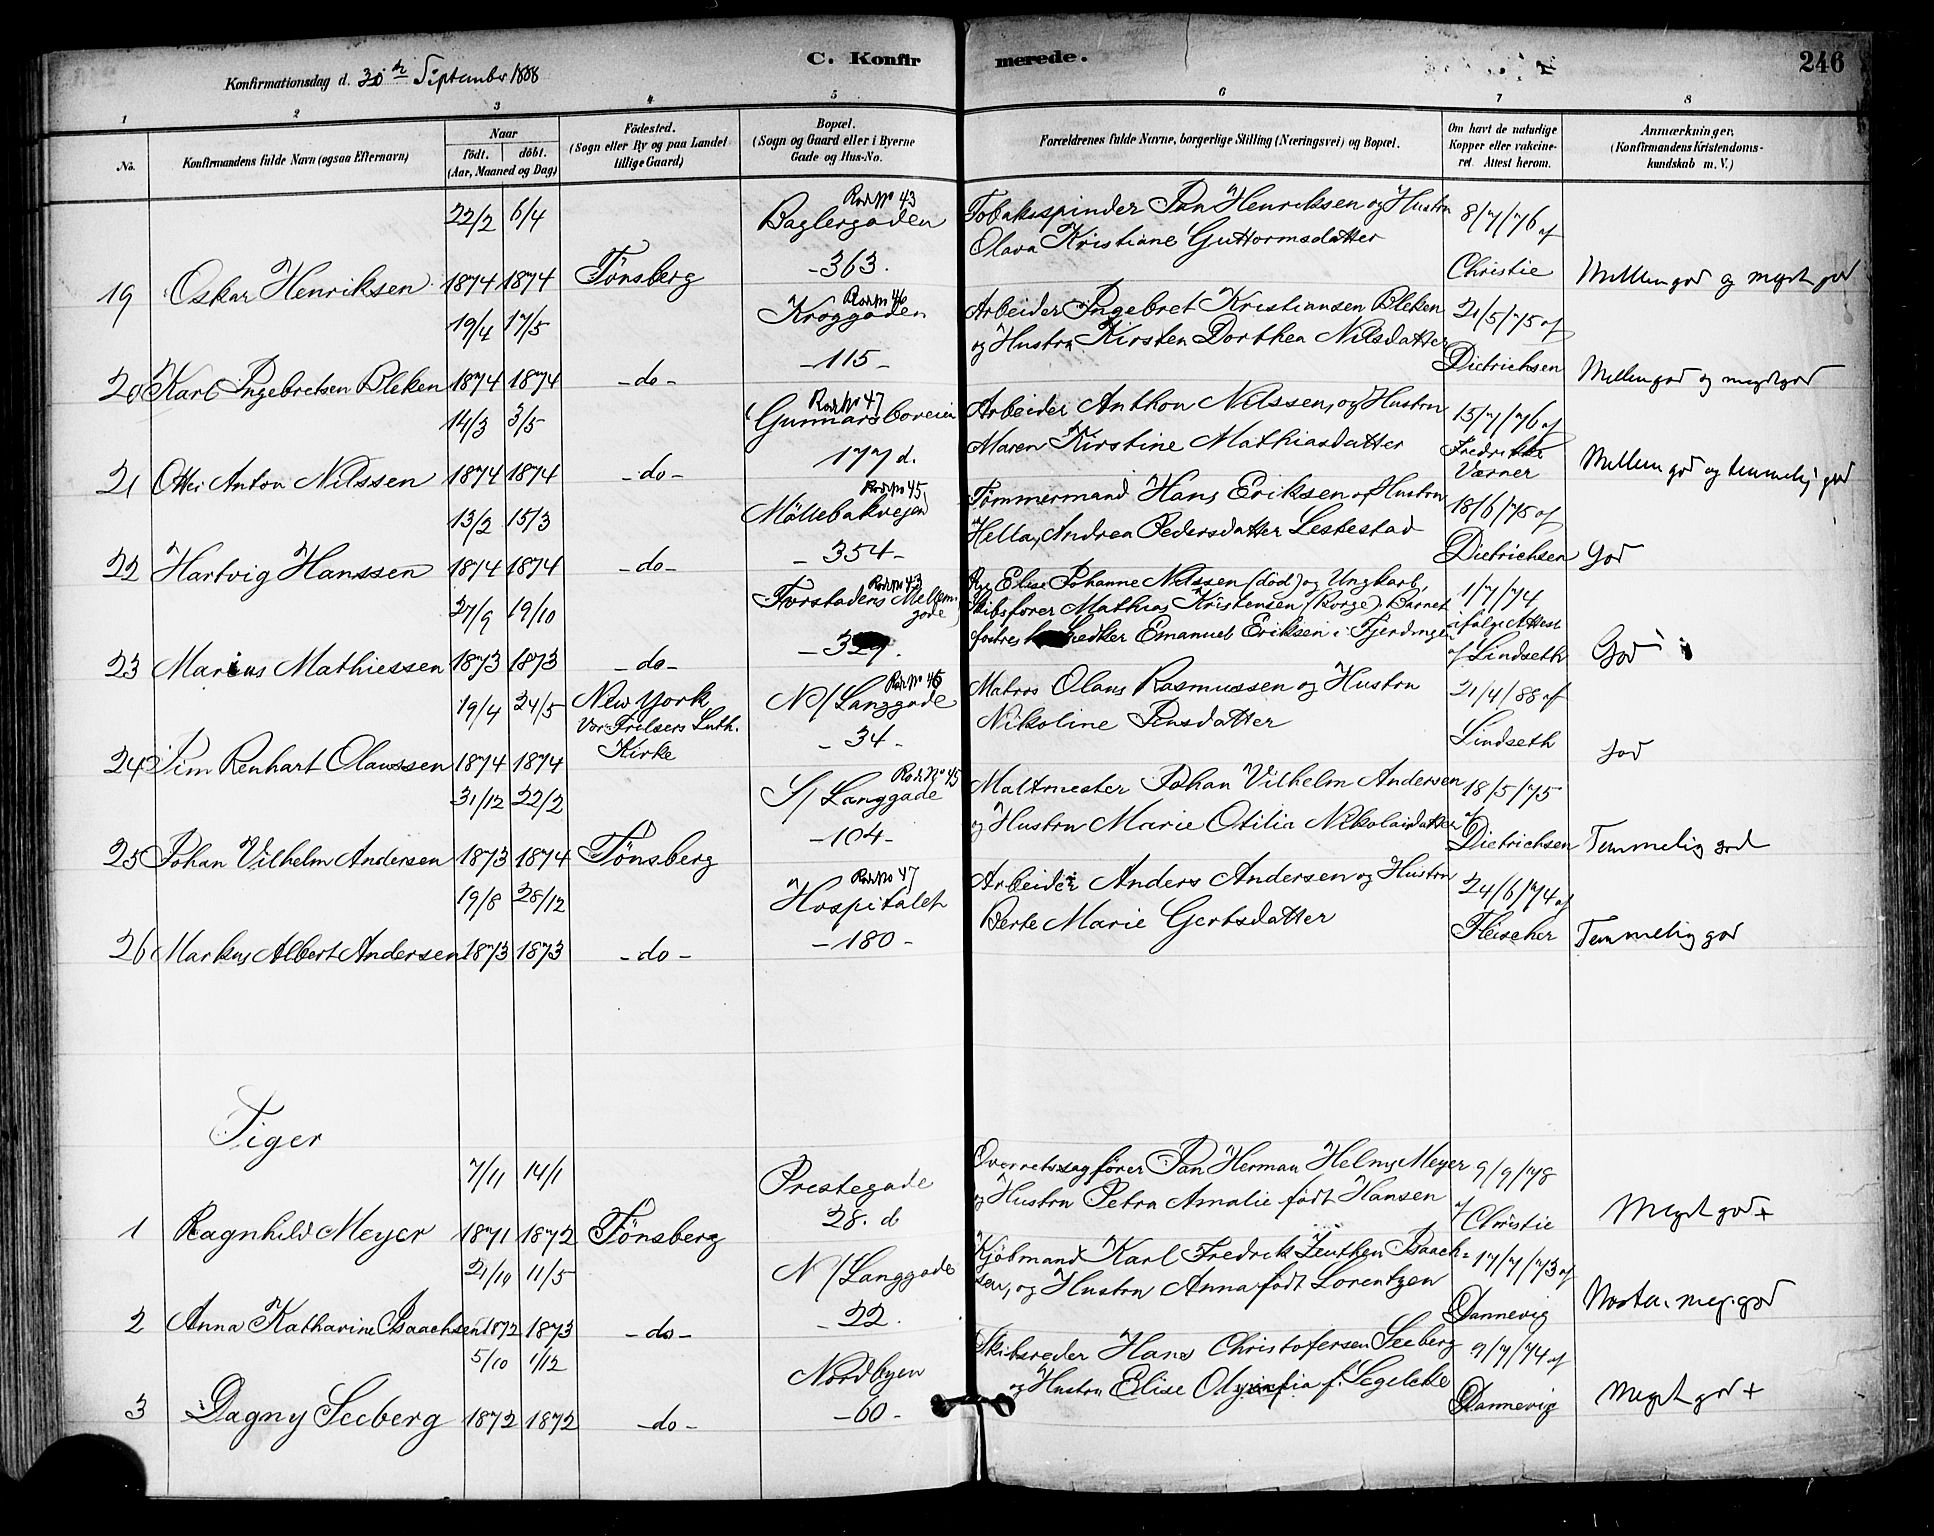 Konfirmationsdag d. 30te September 1888
C. Konfirmerede.
246
1 2 3 4 5 6 7 8
No.
Konfirmandens fulde Navn (ogsaa Efternavn)
Naar
födt. döbt.
(Aar, Maaned og Dag)
Födested.
(Sogn eller By og paa Landet
tillige Gaard)
Bopæl.
(Sogn og Gaard eller i Byerne
Gade og Hus-No.
Forældrenes fulde Navne, borgerlige Stilling (Næringsvei) og Bopæl.
Om havt de naturlige
Kopper eller vakcine-
ret. Attest herom.
Anmærkninger.
(Konfirmandens Kristendoms-
kundskab m. V.)
22/2 6/4 Rode No 43 Baglergaden Tobaksspinder Jan Henriksen og Hustru 8/7/76 af
Olava Kristiane Guttormsdatter
19 Oskar Henriksen 1874 1874 Tönsberg -363. Christie Mellem god og meget god
19/4 17/5 Rode No 46 Kroggaden Arbeider Ingebret Kristiansen Bleken 21/5/75 af
og Hustru Kirsten Dorthea Nilsdatter
20 Karl Ingebretsen Bleken 1874 1874 -do- -115- Dietrichsen Mellem god og meget god
14/3 3/5 Rode No 47 Gunnarsboveien Arbeider Anthon Nilssen og Hustru 15/7/76 af
Maren Kirstine Mathiasdatter
21 Otto Anton Nilssen 1874 1874 -do- 177 d. Fredrikke Værner Mellem god og temmelig god
13/2 15/3 Rode No 45 Möllebakvejen Tömmermand Hans Eriksen og Hustru 18/6/75 af
Hella Andrea Pedersdatter Leskestad
22 Hartvig Hanssen 1874 1874 -do- -354- Dietrichsen God
27/9 19/10 Rode No 43 Forstadens Mellemgade Pige Elise Johanne Nilssen (död) og Ungkarl, 1/7/74
Skibsförer Mathias Kristensen (Borge). Barnet ifölge Attest
fostres Emanuel Eriksen i Fjerdingen
23 Marius Mathiessen 1873 1873 -do- -329. af Lindseth God
19/4 24/5 New York Rode No 45 N/Langgade Matros Olaus Rasmussen og Hustru 21/4/88 af
Vor Frelsers Luth. Nikoline Jensdatter
24 Jim Renhart Olaussen 1874 1874 Kirke -34- Lindseth God
31/12 22/2 Rode No 45 S/Langgade Maltmester Johan Vilhelm Andersen 18/5/75
og Hustru Marie Otilia Nikolaisdatter af
25 Johan Vilhelm Andersen 1873 1874 Tönsberg -104- Dietrichsen Temmelig god
19/8 28/12 Rode No 47 Hospitalet Arbeider Anders Andersen og Hustru 24/6/74 af
Berte Marie Gertsdatter
26 Markus Albert Andersen 1873 1873 -do- -180- Fleischer Temmelig god
Piger
7/11 14/1 Prestegade Overretssagförer Jan Herman Helms Meyer 9/9/78
og Hustru Petra Amalie födt Hansen
1 Ragnhild Meyer 1871 1872 Tönsberg 28. d af Christie Meget god +
21/10 11/5 N/Langgade Kjöbmand Karl Fredrik Zeuthen Isaach- 17/7/73 af
sen, og Hustru Anna födt Lorentzen
2 Anna Katharine Isaachsen 1872 1873 -do- -22. Dannevig Næsten meg. god
5/10 1/12 Nordbyen Skibsreder Hans Christofersen Seeberg 9/7/74 af
og Hustru Elise Olympia f. Segelcke
3 Dagny Seeberg 1872 1872 -do- -60- Dannevig Meget god +